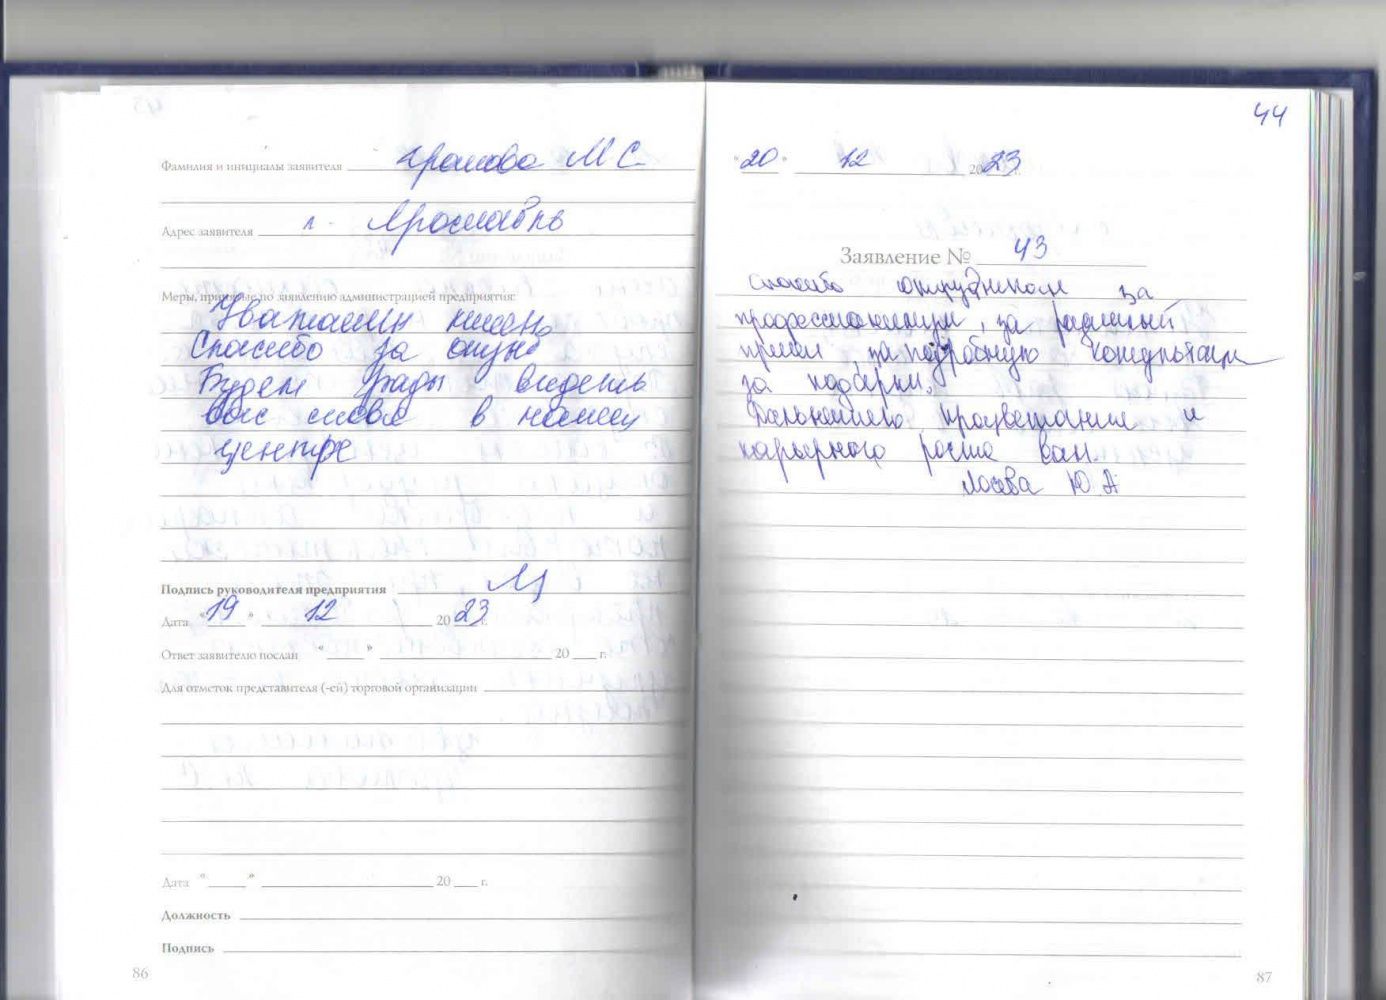 Фамилия и инициалы заявителя Громова М С.
Адрес заявителя г. Ярославль
Меры, принятые по заявлению администрацией предприятия:
Спасибо за
Будем рады видеть
Вас снова в нашем
центре
Подпись руководителя предприятия
Дата "19" 12 2023 г.
Ответ заявителю послан " " 20 г.
Для отметок представителя (-ей) торговой организации
Дата " " 20 г.
Должность
Подпись
86
44
"20" 12 2023 г.
Заявление № 43
Спасибо сотрудникам за
профессионализм, за радушный
прием, за подробную
за подарки.
Дальнейшего процветания и
карьерного роста вам.
Лосева Ю.А
87